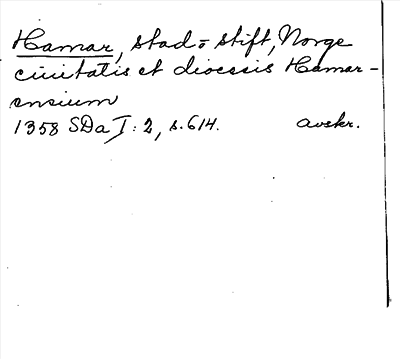 Hamar, stad o stift, Norge
ciuitatis et diocesis Hamar-
ensium
1358 SDa I: 2, s. 614. avskr.